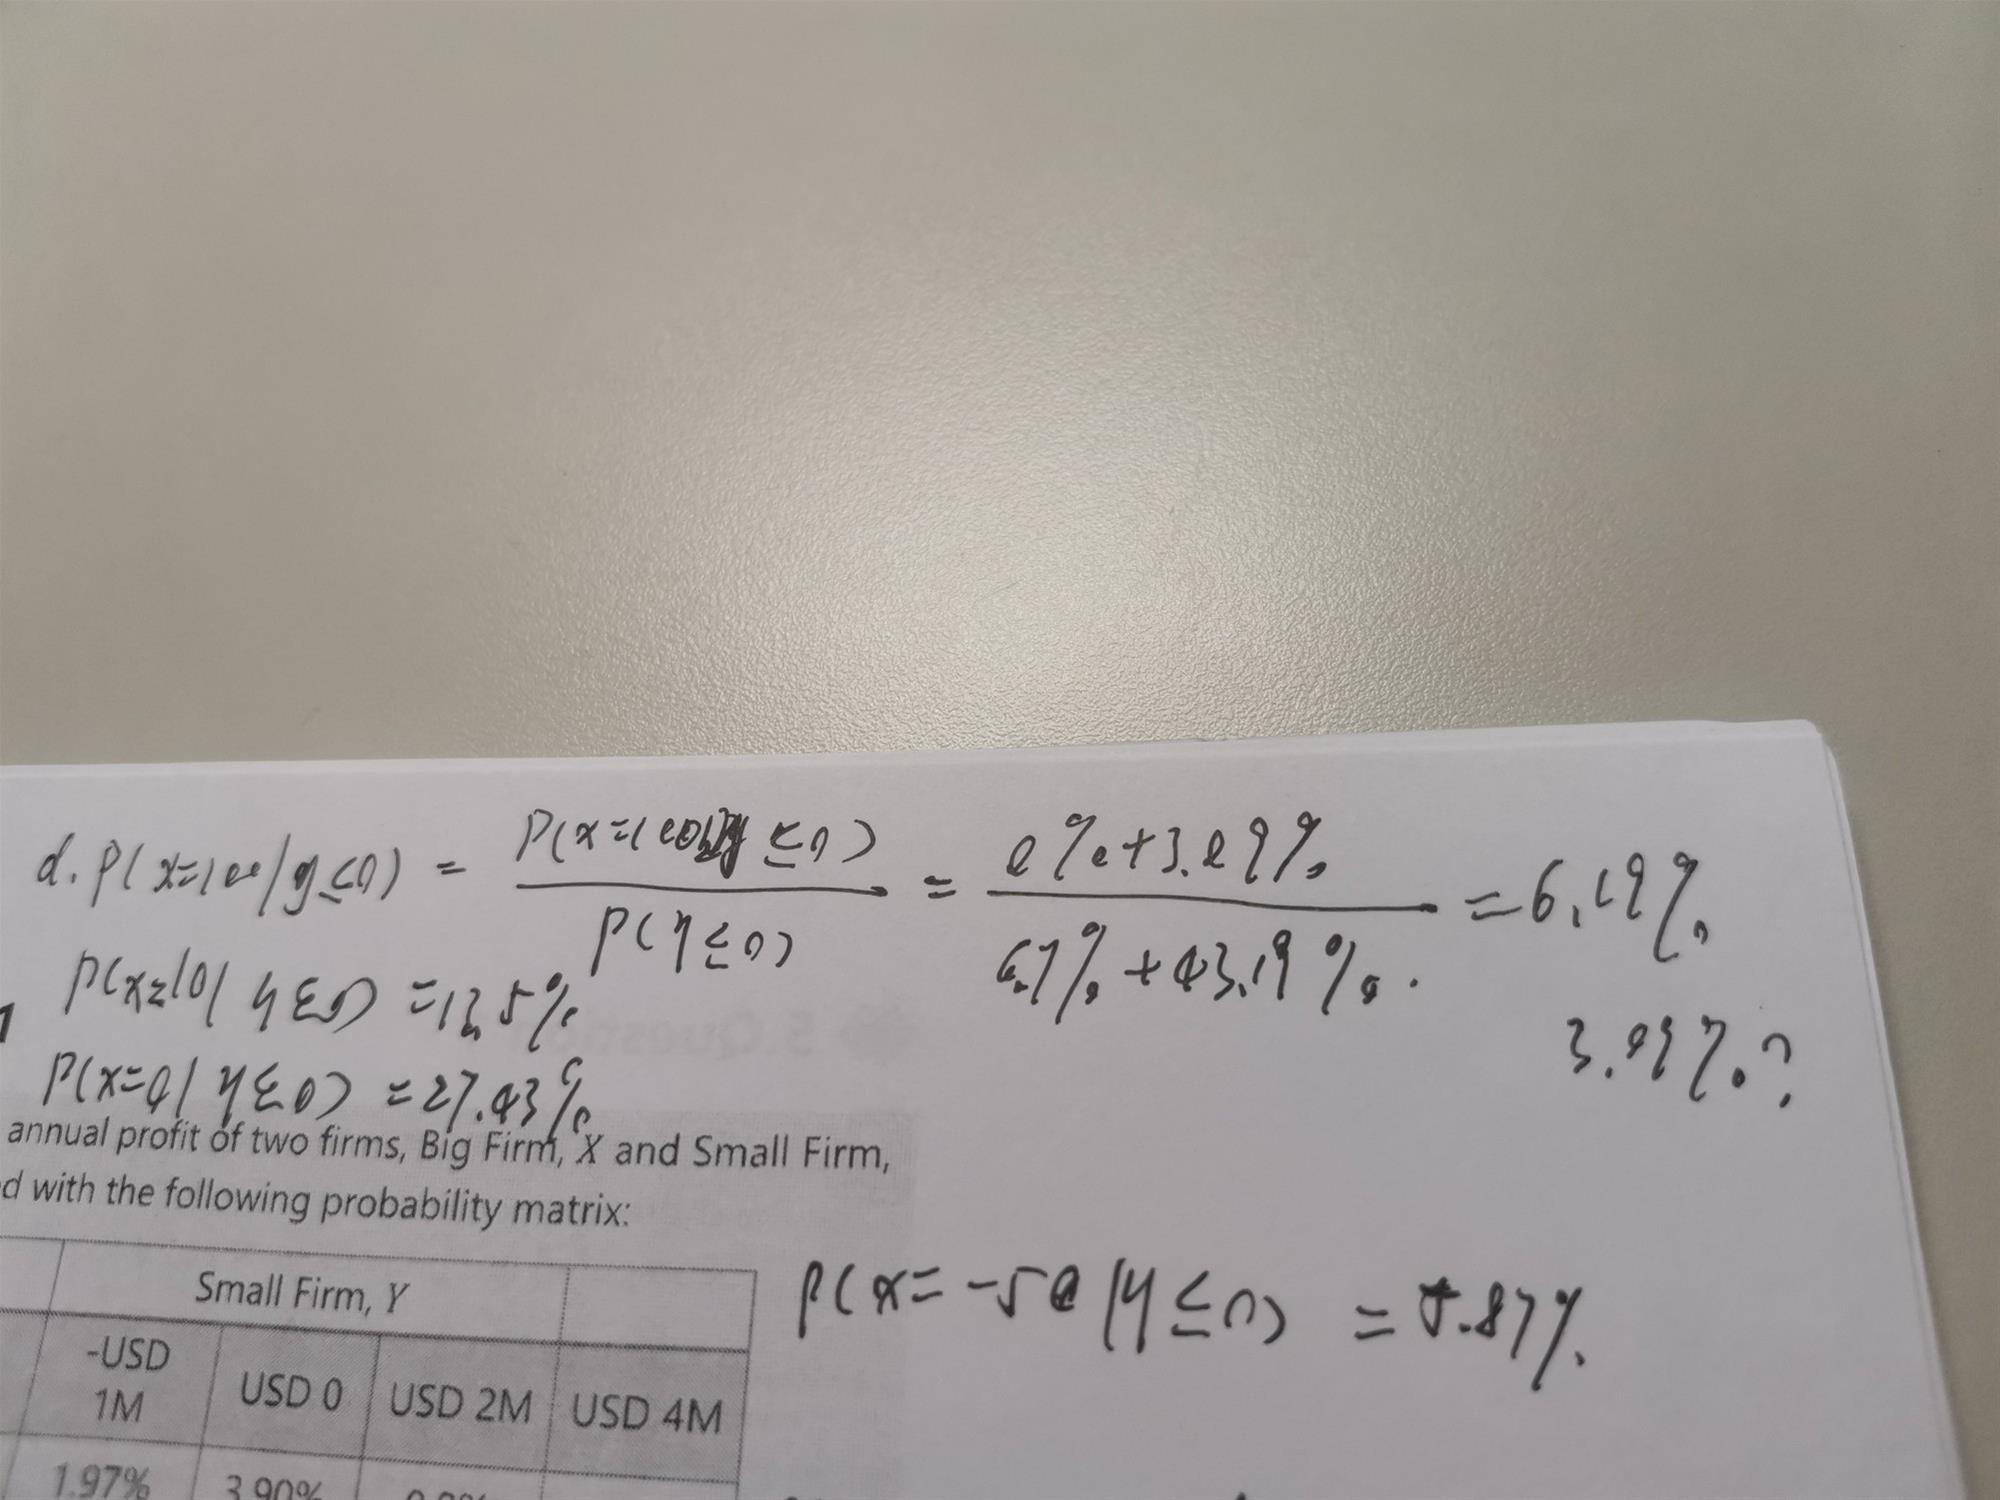 d. P(x=100/y≤0) = P(x=100, y≤0) / P(y≤0) = 0%+3.09% / 6.7%+43.19%. = 6.19%
P(x=10/ y≤0) = 12.5%
3.09%?
P(x=0/ y≤0) = 27.43%
annual profit of two firms, Big Firm, X and Small Firm,
d with the following probability matrix:
P(x=-50/y≤0) = 5.87%
Small Firm, Y
-USD
1M
USD 0
USD 2M
USD 4M
1.97%
3.90%